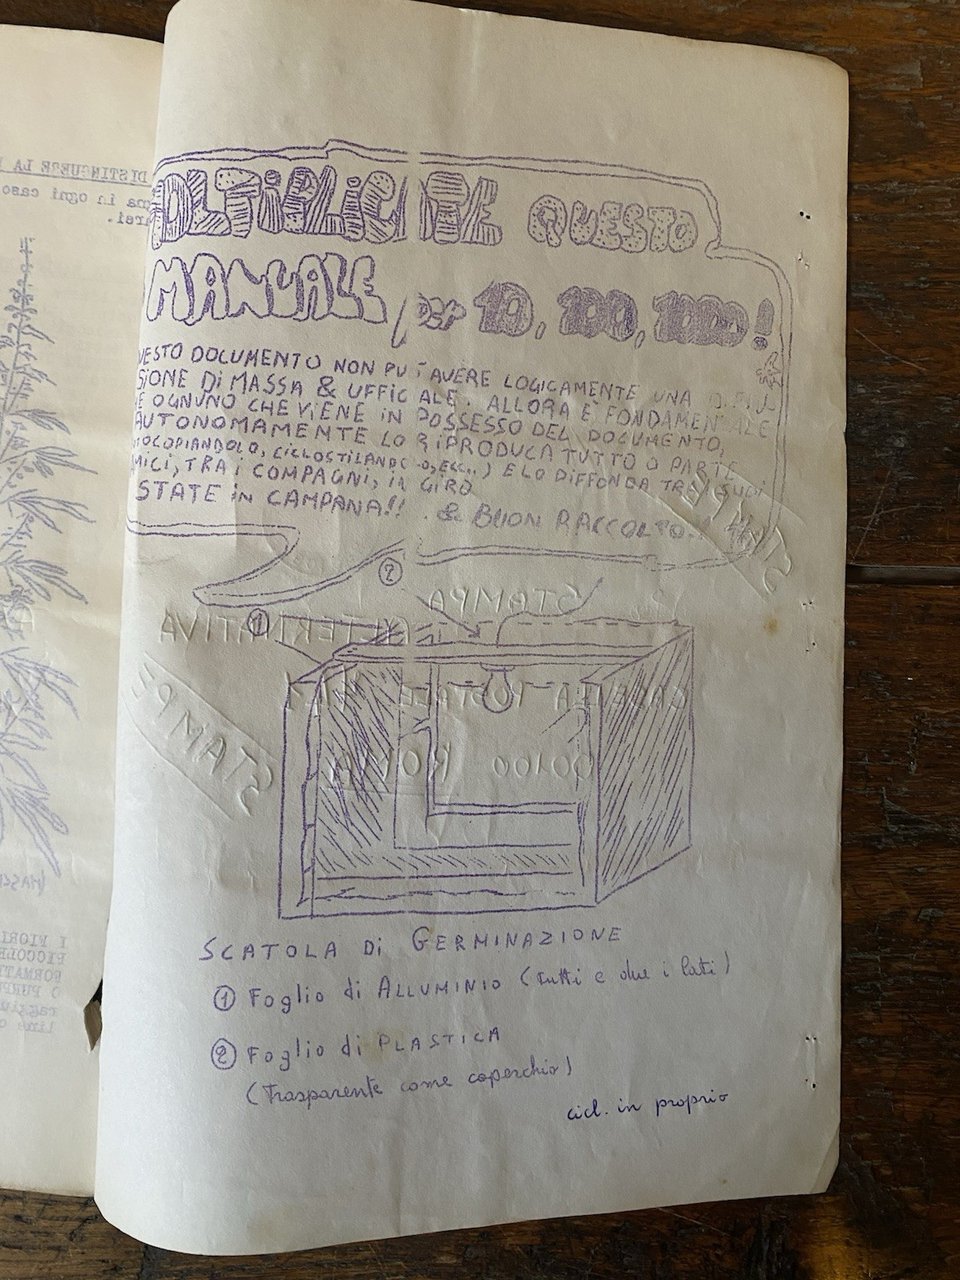 OLTIPLICATE QUESTO
MANUALE per 10, 100, 1000!
UESTO DOCUMENTO NON PUÒ AVERE LOGICAMENTE UNA
SIONE DI MASSA & UFFICIALE. ALLORA È FONDAMENTALE
E OGNUNO CHE VIENE IN POSSESSO DEL DOCUMENTO,
AUTONOMAMENTE LO RIPRODUCA TUTTO O PARTE
TOCOPIANDOLO, CICLOSTILANDOLO, ECC..) E LO DIFFONDA TRA I SUOI
MICI, TRA I COMPAGNI, IN GIRO
STATE IN CAMPANA!! & BUON RACCOLTO..!
STAMPE
②
STAMPA
① ALTERNATIVA
CASELLA POSTALE
00100 ROMA
STAMPE
SCATOLA DI GERMINAZIONE
① Foglio di ALLUMINIO (tutti e due i lati)
② Foglio di PLASTICA
(Trasparente come coperchio)
cicl. in proprio
DISTINGUERE LA
ma in ogni caso
I FIORI
PICCOLE
FORMATI